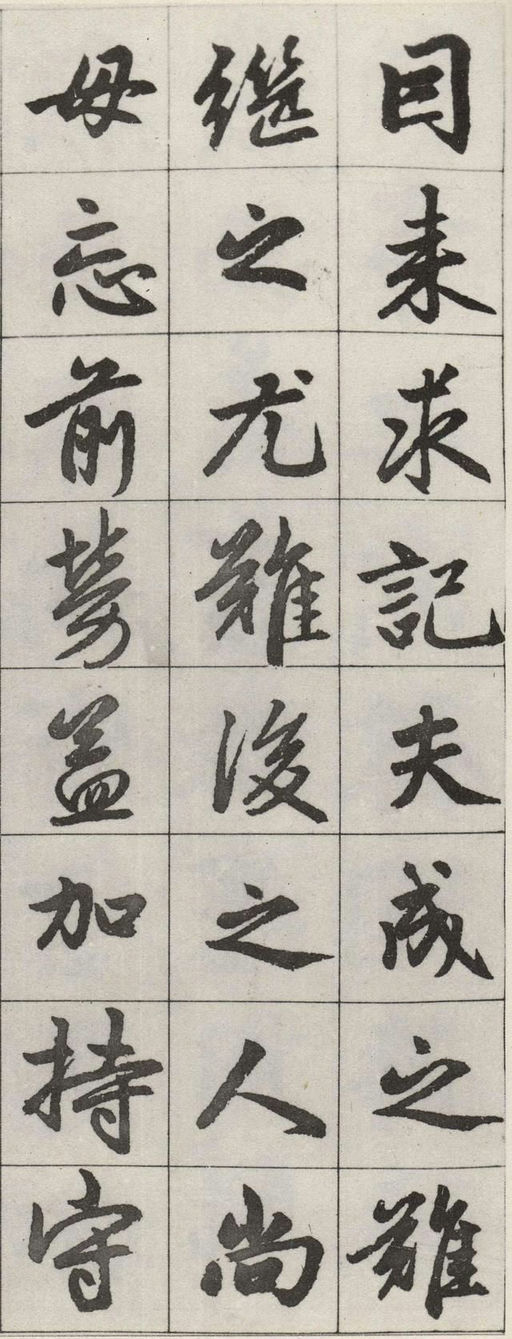 因来求記夫成之難
継之尤難後之人尚
毋忘前勞益加持守